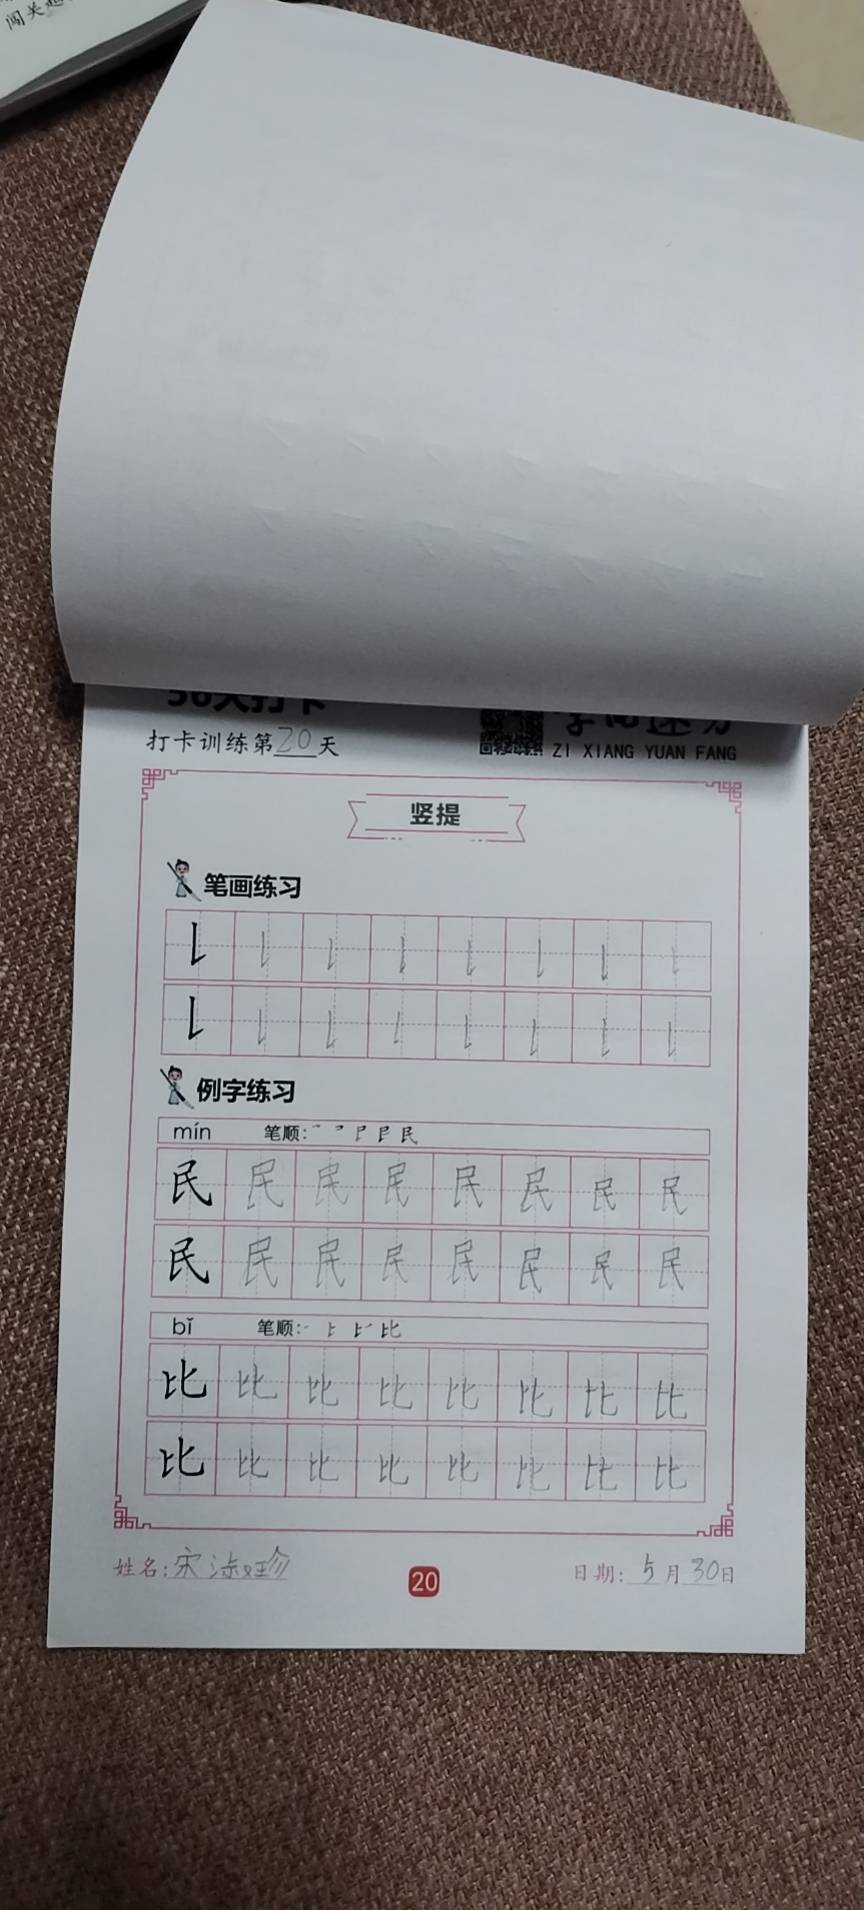 闯关
打卡训练第20天
ZI XIANG YUAN FANG
竖提
笔画练习
例字练习
mín 笔顺:
民 民 民 民 民 民 民 民
民 民 民 民 民 民 民 民
bǐ 笔顺:
比 比 比 比 比 比 比 比
比 比 比 比 比 比 比 比
姓名:宋
20
日期:5月30日